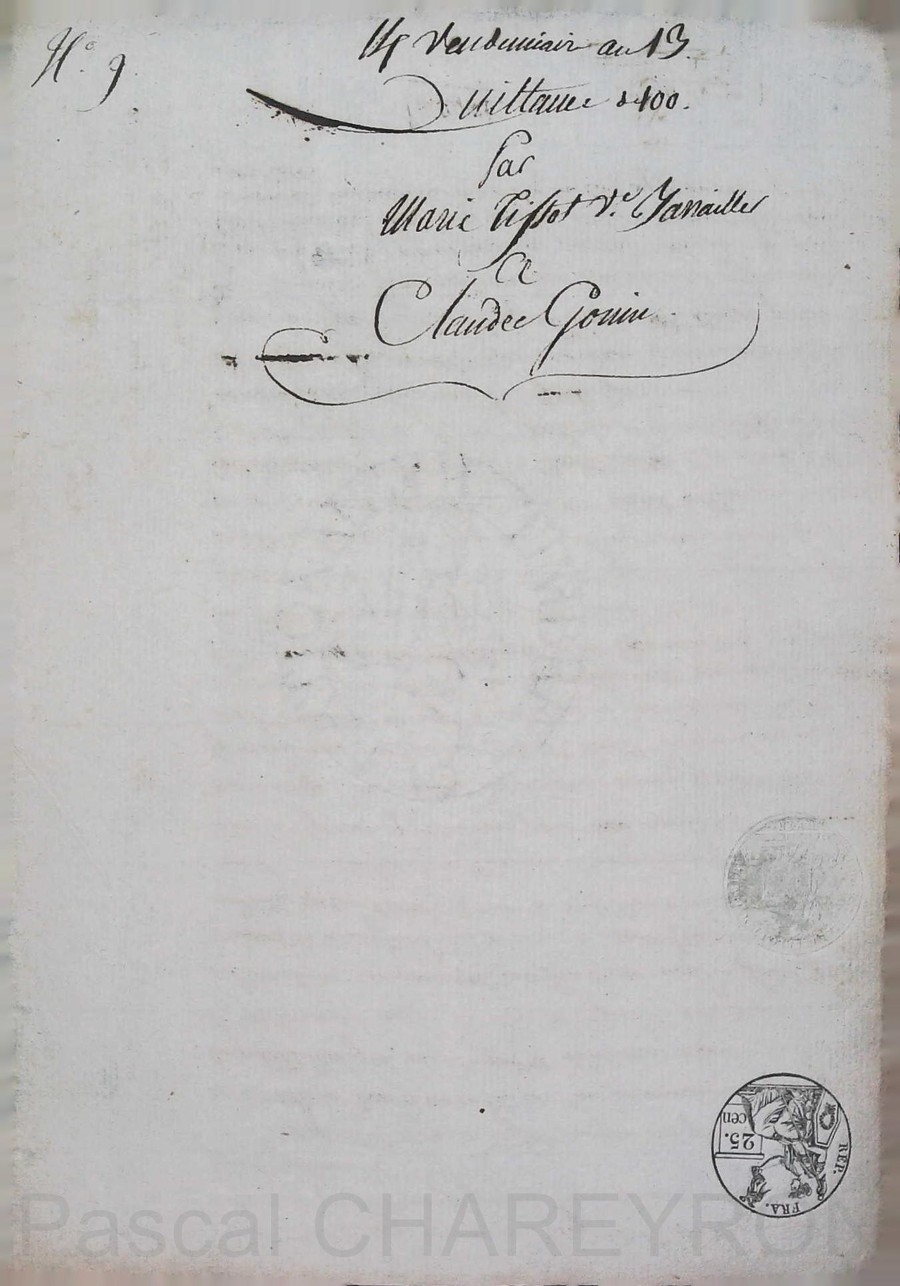 N.° 9.
14 Vendemiair an 13
Quittance de 100.
Par
Marie Tissot v.e Janailler
A
Claude Gonin
25.
cen
REP.
FRA.
Pascal CHAREYRON